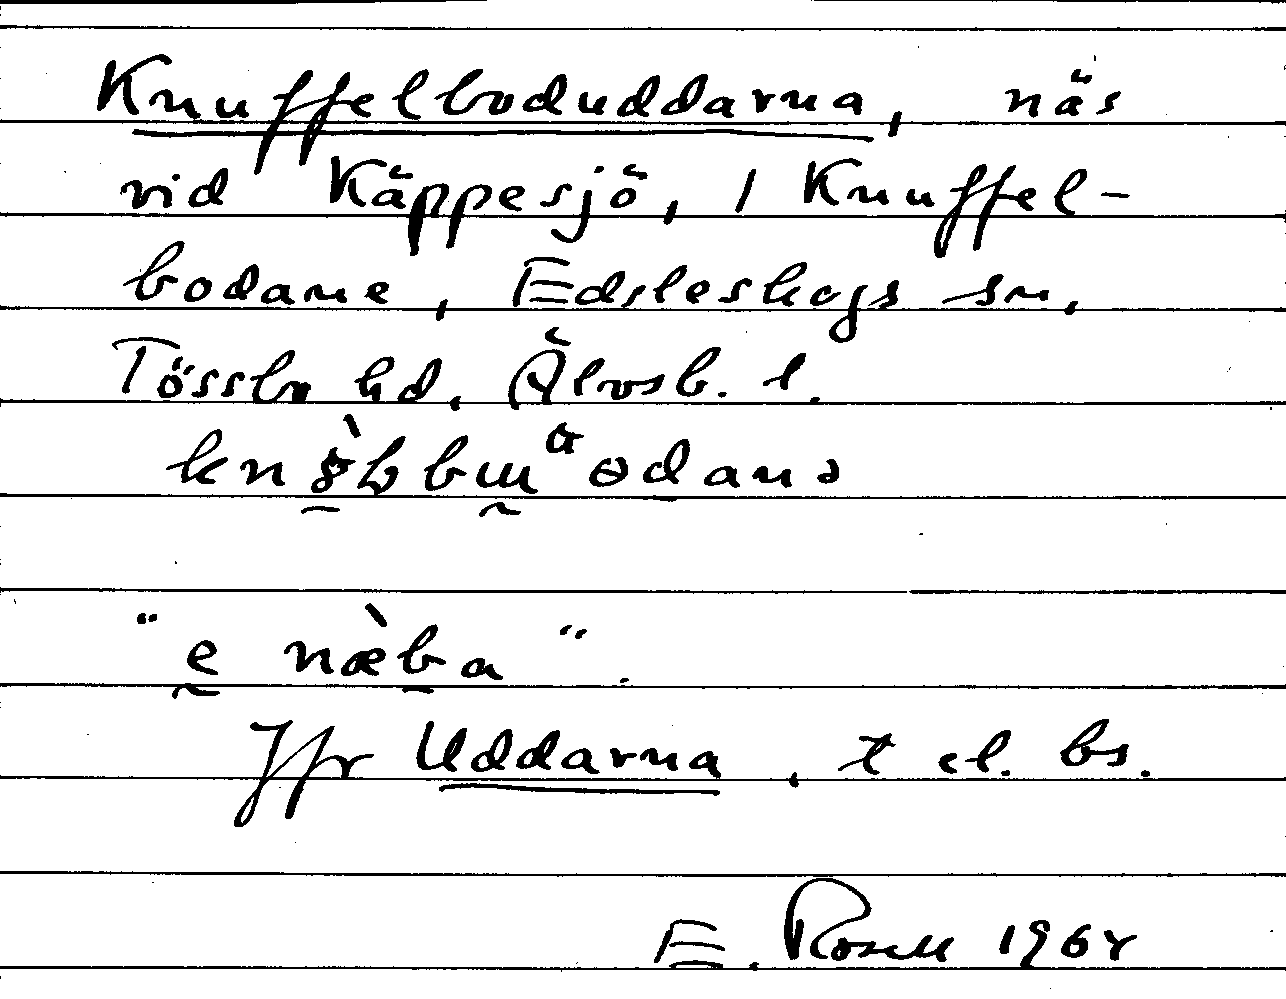 Knuffelboduddarna, näs
vid Käppesjö, i Knuffel-
bodane, Edsleskogs sn,
Tössbo hd, Älvsb. l.
"e næ̀ba".
Jfr Uddarna, t el. bs.
E. Rosell 196